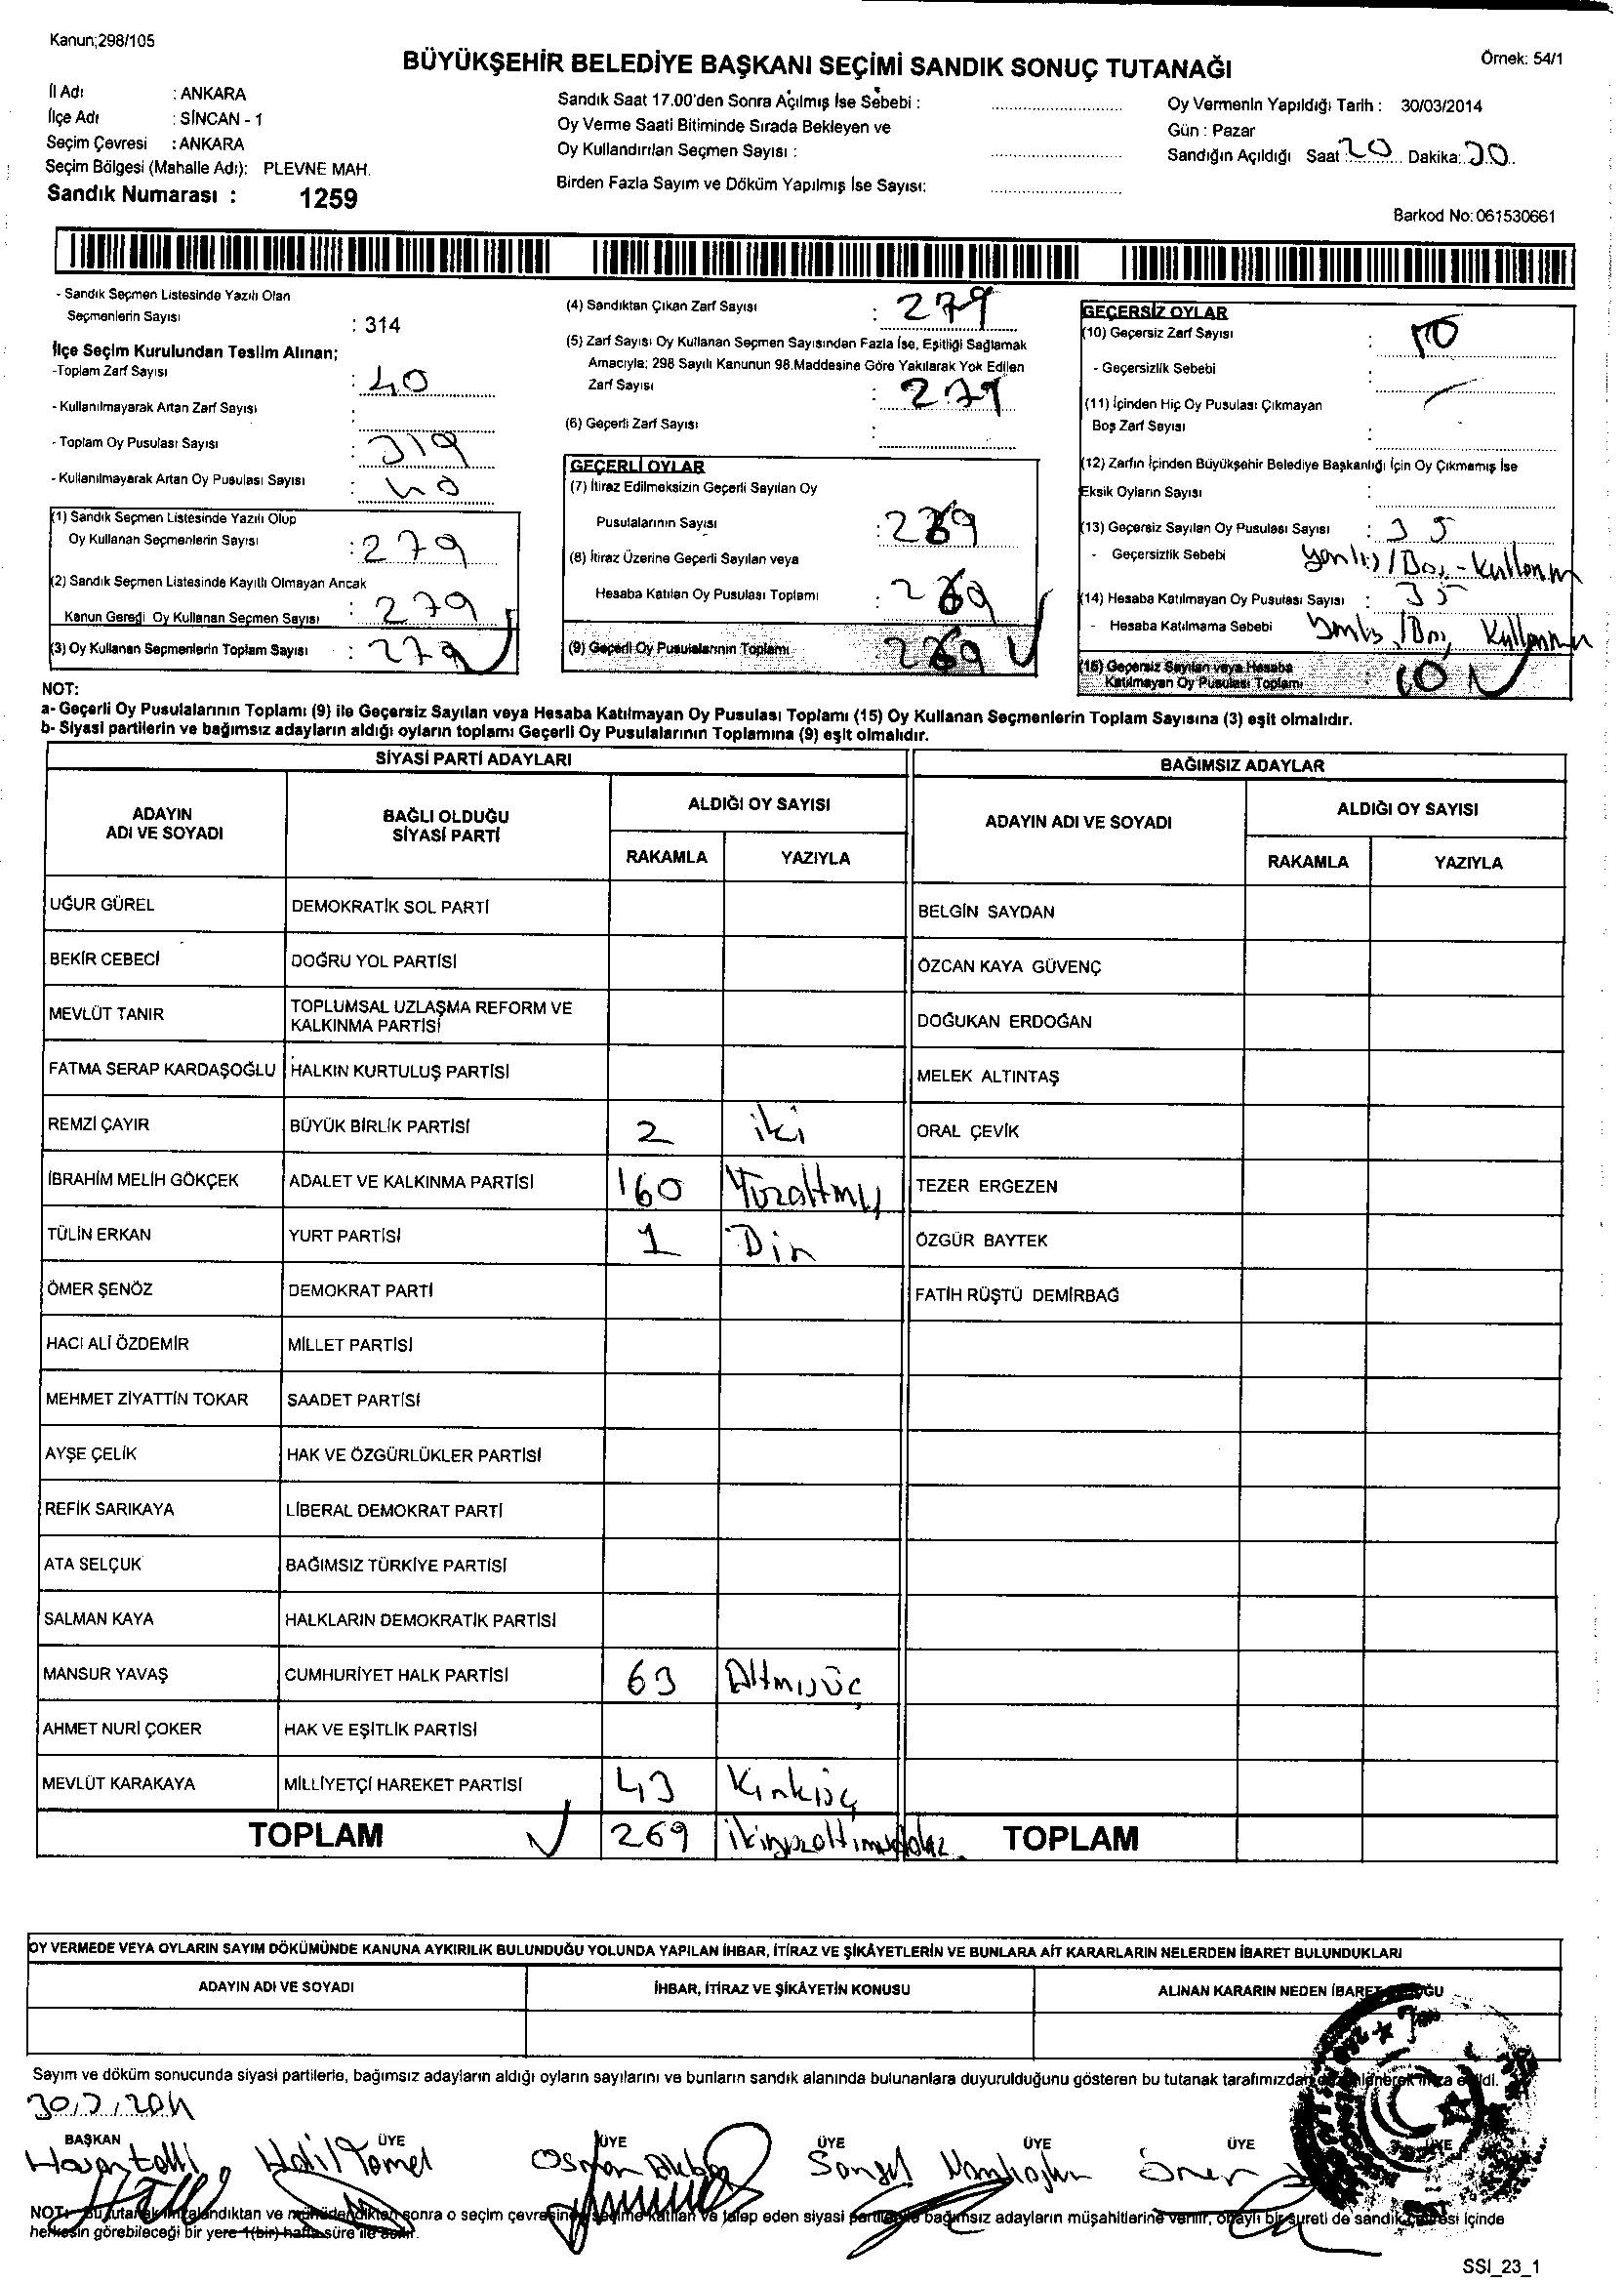 Kanun;298/105
BÜYÜKŞEHİR BELEDİYE BAŞKANI SEÇİMİ SANDIK SONUÇ TUTANAĞI
Örnek: 54/1
İl Adı : ANKARA
İlçe Adı : SİNCAN - 1
Seçim Çevresi : ANKARA
Seçim Bölgesi (Mahalle Adı): PLEVNE MAH.
Sandık Numarası : 1259
Sandık Saat 17.00'den Sonra Açılmış İse Sebebi :
Oy Verme Saati Bitiminde Sırada Bekleyen ve
Oy Kullandırılan Seçmen Sayısı :
Birden Fazla Sayım ve Döküm Yapılmış İse Sayısı:
Oy Vermenin Yapıldığı Tarih : 30/03/2014
Gün : Pazar
Sandığın Açıldığı Saat 20 Dakika:
Barkod No: 061530661
- Sandık Seçmen Listesinde Yazılı Olan
Seçmenlerin Sayısı : 314
İlçe Seçim Kurulundan Teslim Alınan;
-Toplam Zarf Sayısı : 40
- Kullanılmayarak Artan Zarf Sayısı :
- Toplam Oy Pusulası Sayısı : 319
- Kullanılmayarak Artan Oy Pusulası Sayısı : 40
(1) Sandık Seçmen Listesinde Yazılı Olup
Oy Kullanan Seçmenlerin Sayısı : 279
(2) Sandık Seçmen Listesinde Kayıtlı Olmayan Ancak
Kanun Gereği Oy Kullanan Seçmen Sayısı : 279
(3) Oy Kullanan Seçmenlerin Toplam Sayısı : 279
(4) Sandıktan Çıkan Zarf Sayısı : 279
(5) Zarf Sayısı Oy Kullanan Seçmen Sayısından Fazla İse, Eşitliği Sağlamak
Amacıyla; 298 Sayılı Kanunun 98.Maddesine Göre Yakılarak Yok Edilen
Zarf Sayısı : 279
(6) Geçerli Zarf Sayısı :
GEÇERLİ OYLAR
(7) İtiraz Edilmeksizin Geçerli Sayılan Oy
Pusulalarının Sayısı : 269
(8) İtiraz Üzerine Geçerli Sayılan veya
Hesaba Katılan Oy Pusulası Toplamı : 269
(9) Geçerli Oy Pusulalarının Toplamı 269
GEÇERSİZ OYLAR
(10) Geçersiz Zarf Sayısı : 10
- Geçersizlik Sebebi :
(11) İçinden Hiç Oy Pusulası Çıkmayan
Boş Zarf Sayısı :
(12) Zarfın İçinden Büyükşehir Belediye Başkanlığı İçin Oy Çıkmamış İse
Eksik Oyların Sayısı :
(13) Geçersiz Sayılan Oy Pusulası Sayısı : 35
- Geçersizlik Sebebi yanlış/Boş-kullanım
(14) Hesaba Katılmayan Oy Pusulası Sayısı : 35
- Hesaba Katılmama Sebebi Yanlış/Boş Kullanım
(15) Geçersiz Sayılan veya Hesaba
Katılmayan Oy Pusulası Toplamı 10
NOT:
a- Geçerli Oy Pusulalarının Toplamı (9) ile Geçersiz Sayılan veya Hesaba Katılmayan Oy Pusulası Toplamı (15) Oy Kullanan Seçmenlerin Toplam Sayısına (3) eşit olmalıdır.
b- Siyasi partilerin ve bağımsız adayların aldığı oyların toplamı Geçerli Oy Pusulalarının Toplamına (9) eşit olmalıdır.
SİYASİ PARTİ ADAYLARI
ADAYIN ADI VE SOYADI
BAĞLI OLDUĞU SİYASİ PARTİ
ALDIĞI OY SAYISI
RAKAMLA YAZIYLA
UĞUR GÜREL DEMOKRATİK SOL PARTİ
BEKİR CEBECİ DOĞRU YOL PARTİSİ
MEVLÜT TANIR TOPLUMSAL UZLAŞMA REFORM VE
KALKINMA PARTİSİ
FATMA SERAP KARDAŞOĞLU HALKIN KURTULUŞ PARTİSİ
REMZİ ÇAYIR BÜYÜK BİRLİK PARTİSİ 2 iki
İBRAHİM MELİH GÖKÇEK ADALET VE KALKINMA PARTİSİ 160 Yüzaltmış
TÜLİN ERKAN YURT PARTİSİ 1 Bir
ÖMER ŞENÖZ DEMOKRAT PARTİ
HACI ALİ ÖZDEMİR MİLLET PARTİSİ
MEHMET ZİYATTİN TOKAR SAADET PARTİSİ
AYŞE ÇELİK HAK VE ÖZGÜRLÜKLER PARTİSİ
REFİK SARIKAYA LİBERAL DEMOKRAT PARTİ
ATA SELÇUK BAĞIMSIZ TÜRKİYE PARTİSİ
SALMAN KAYA HALKLARIN DEMOKRATİK PARTİSİ
MANSUR YAVAŞ CUMHURİYET HALK PARTİSİ 63 Altmışüç
AHMET NURİ ÇOKER HAK VE EŞİTLİK PARTİSİ
MEVLÜT KARAKAYA MİLLİYETÇİ HAREKET PARTİSİ 43 Kırküç
TOPLAM 269 ikiyüzaltmışdokuz
BAĞIMSIZ ADAYLAR
ADAYIN ADI VE SOYADI
ALDIĞI OY SAYISI
RAKAMLA YAZIYLA
BELGİN SAYDAN
ÖZCAN KAYA GÜVENÇ
DOĞUKAN ERDOĞAN
MELEK ALTINTAŞ
ORAL ÇEVİK
TEZER ERGEZEN
ÖZGÜR BAYTEK
FATİH RÜŞTÜ DEMİRBAĞ
TOPLAM
OY VERMEDE VEYA OYLARIN SAYIM DÖKÜMÜNDE KANUNA AYKIRILIK BULUNDUĞU YOLUNDA YAPILAN İHBAR, İTİRAZ VE ŞİKÂYETLERİN VE BUNLARA AİT KARARLARIN NELERDEN İBARET BULUNDUKLARI
ADAYIN ADI VE SOYADI İHBAR, İTİRAZ VE ŞİKÂYETİN KONUSU ALINAN KARARIN NEDEN İBARET
Sayım ve döküm sonucunda siyasi partilerle, bağımsız adayların aldığı oyların sayılarını ve bunların sandık alanında bulunanlara duyurulduğunu gösteren bu tutanak tarafımızdan
30.3.2014
BAŞKAN ÜYE ÜYE ÜYE ÜYE ÜYE ÜYE
Halil Temel Osman Öner
NOT: Bu tutanak imzalandıktan ve mühürlendikten sonra o seçim çevresinde seçime katılan ve talep eden siyasi partilerle bağımsız adayların müşahitlerine verilir, onaylı bir sureti de sandık çevresi içinde
herkesin görebileceği bir yere 1(bir) hafta süre ile asılır.
SSI_23_1